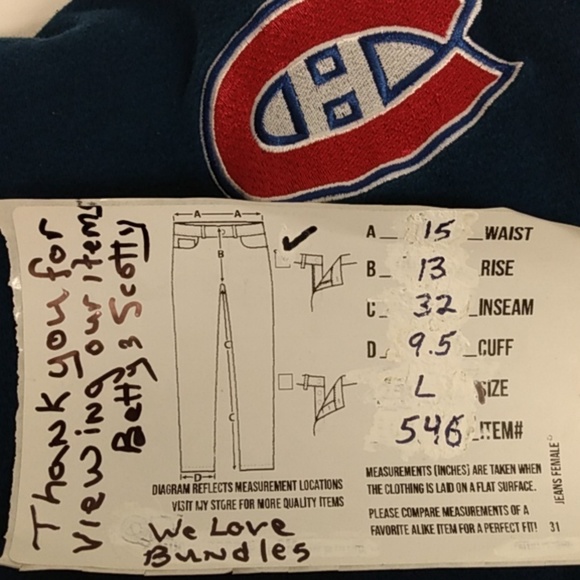 Thank you for
viewing our items
Betty & Scotty
A A
B
C
C
D
A 15 WAIST
B 13 RISE
C 32 INSEAM
D 9.5 CUFF
L SIZE
546 ITEM#
DIAGRAM REFLECTS MEASUREMENT LOCATIONS
VISIT MY STORE FOR MORE QUALITY ITEMS
We Love
Bundles
MEASUREMENTS (INCHES) ARE TAKEN WHEN
THE CLOTHING IS LAID ON A FLAT SURFACE.
PLEASE COMPARE MEASUREMENTS OF A
FAVORITE ALIKE ITEM FOR A PERFECT FIT! 31
JEANS FEMALE